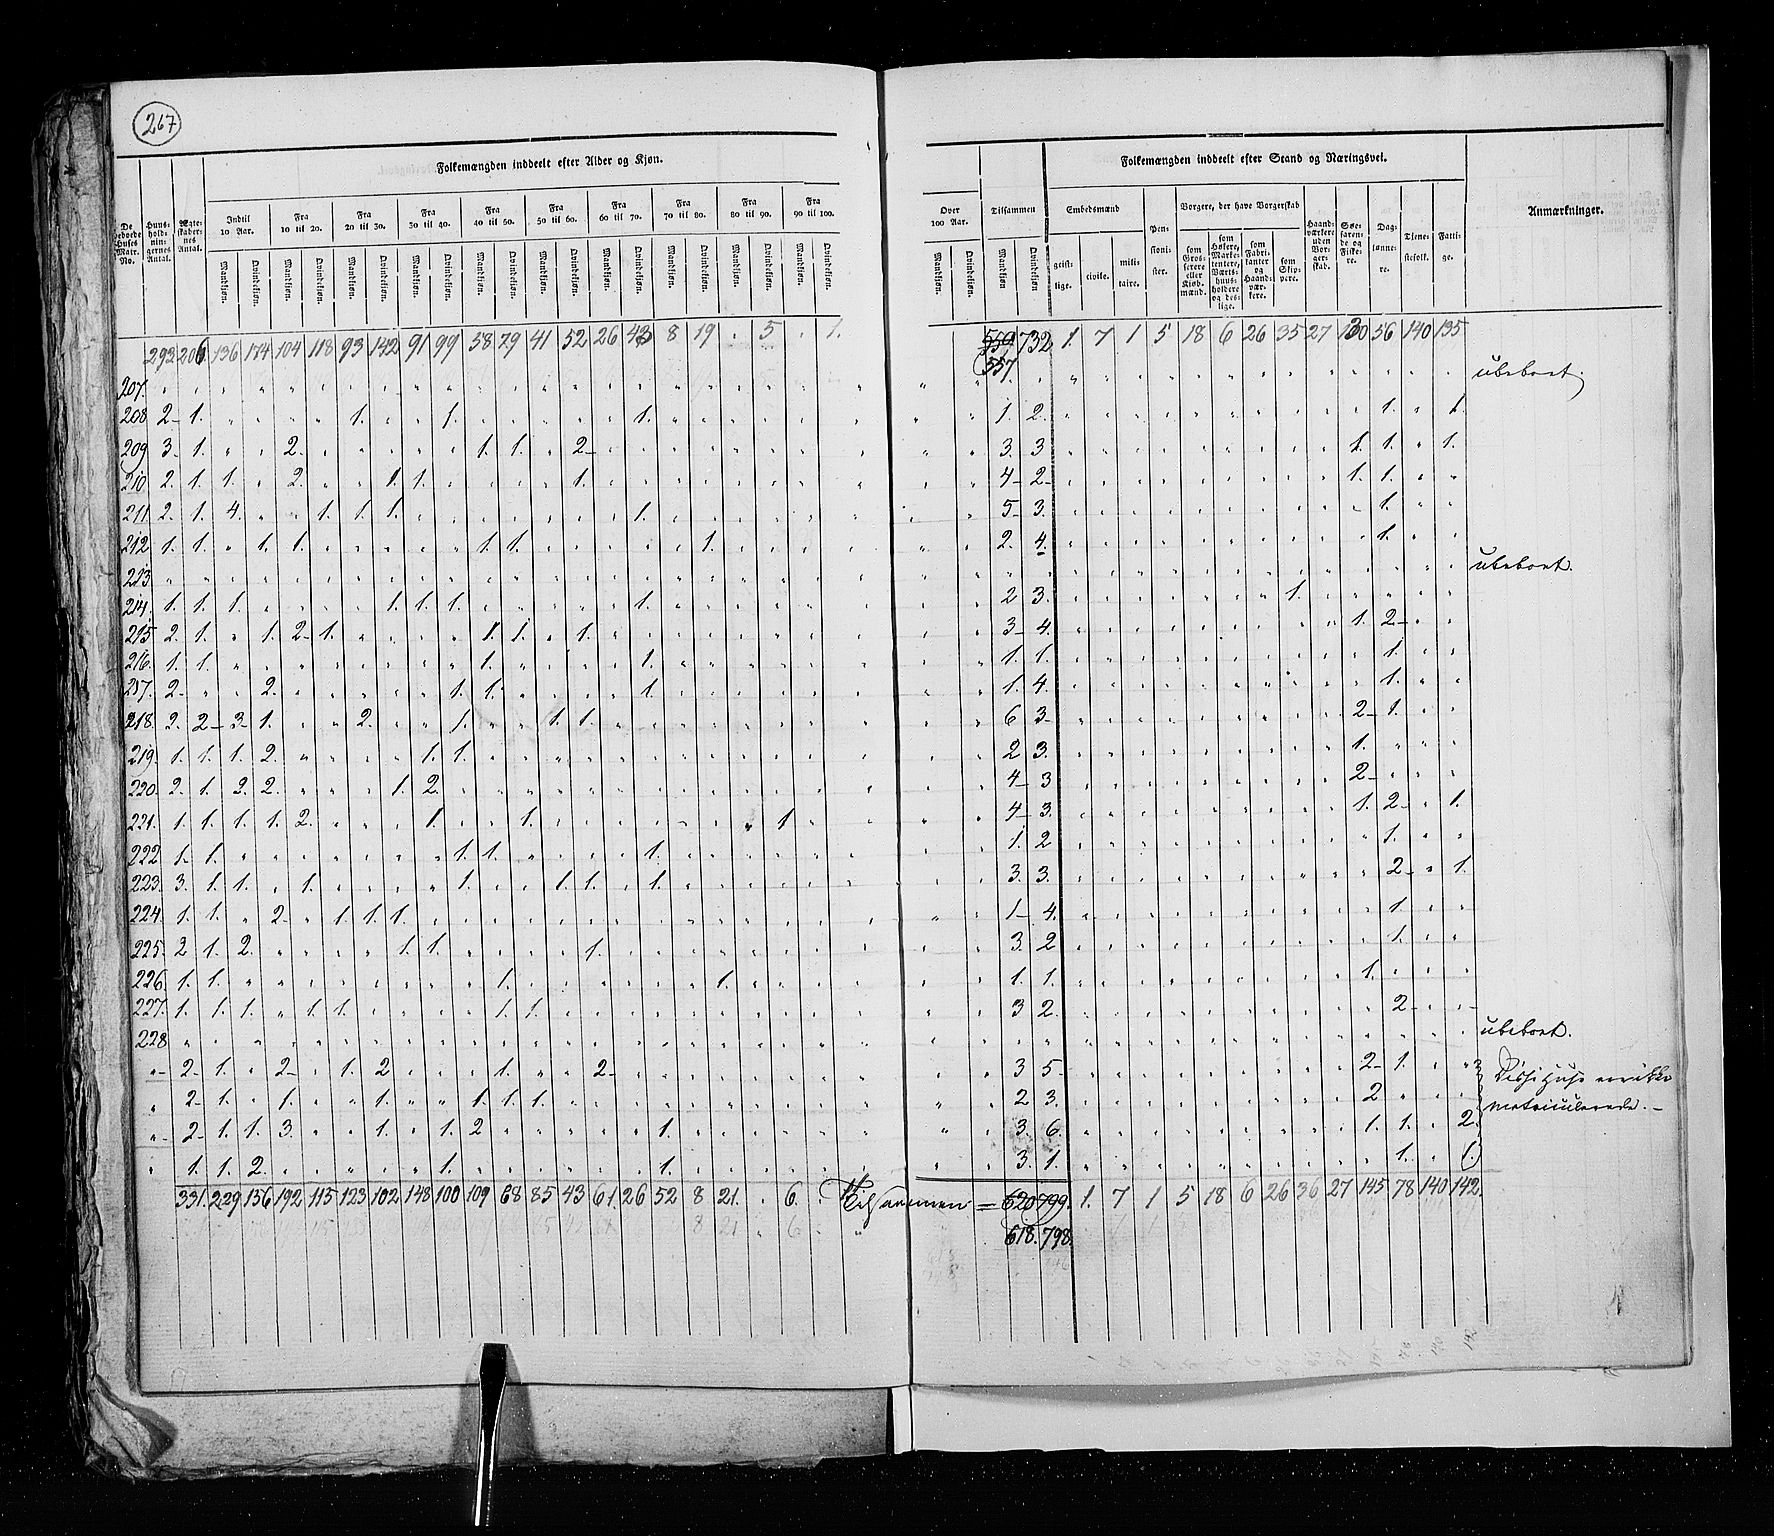 267
Folkemængden inddeelt efter Alder og Kjøn.
De beboede Huses Matr. No.
Huusholdningernes Antal.
Ægteskabernes Antal.
Indtil 10 Aar. Fra 10 til 20. Fra 20 til 30. Fra 30 til 40. Fra 40 til 50. Fra 50 til 60. Fra 60 til 70. Fra 70 til 80. Fra 80 til 90. Fra 90 til 100.
Mandkjøn. Qvindekjøn. Mandkjøn. Qvindekjøn. Mandkjøn. Qvindekjøn. Mandkjøn. Qvindekjøn. Mandkjøn. Qvindekjøn. Mandkjøn. Qvindekjøn. Mandkjøn. Qvindekjøn. Mandkjøn. Qvindekjøn. Mandkjøn. Qvindekjøn. Mandkjøn. Qvindekjøn.
Over 100 Aar. Tilsammen
Mandkjøn. Qvindekjøn. Mandkjøn Qvindekjøn
Folkemængden inddeelt efter Stand og Næringsvei.
Embedsmænd
geistlige. civile. militaire.
Pensionister.
Borgere, der have Borgerskab
som Grosserere eller Kjøbmænd. som Høkere, Marketentere, Værtshuusholdere og deslige. som Fabrikanter og Haandværkere. som Skippere.
Haandværkere uden Borgerskab.
Søefarende og Fiskere.
Daglønnere.
Tjenestefolk.
Fattige.
Anmærkninger.
292 206 136 174 104 118 93 142 91 99 58 79 41 52 26 43 8 19 . 5 . 1. 559 732 1 7 1 5 18 6 26 35 27 130 56 140 135
557
207. ubeboet.
208 2 1. 1. 1. 1. 1. 2. 1. 1.
209 3. 1. 2. 1. 1. 2 3. 3 1. 1. 1.
210 2. 1. 1. 2. 1. 1. 1. 4 2 1. 1.
211 2. 1. 4. 1. 1. 1. 1. 5 3. 1.
212 1. 1. 1. 1. 1. 1. 1. 2. 4. 1.
213 ubeboet.
214. 1. 1. 1. 1. 1. 1. 1. 2 3. 1.
215 2. 1. 1. 2 1. 1. 1. 1. 3 4. 1. 2
216. 1. 1. 1. 1. 1. 1. 1.
217. 2 2. 1. 1. 1. 1. 4. 1.
218. 2. 2 3 1. 2. 1. 1. 1. 6 3. 2 1.
219. 1. 1. 1. 2. 1. 1. 2 3. 1.
220. 2. 1. 2. 2. 1. 2. 4 3 2
221. 1. 1. 1. 1. 2. 1. 1. 1 4 3. 1. 2 1.
222 1. 1. 1. 1. 1. 1. 2 1.
223. 3. 1. 1. 1. 1. 1. 1. 1. 3. 3. 2 1.
224. 1. 1. 2 1. 1. 1. 1 4. 1.
225. 2 1. 2. 1. 1. 1. 3. 2 1.
226. 1. 1. 1. 1. 1. 1. 1.
227. 1. 1. 1. 1. 1. 1. 1. 3 2. 2
228 ubeboet.
" 2 1. 2 1. 2 1. 2 3 5 2 1. Disse Huse ere ikke
" 2 1. 1. 1. 1. 1. 1. 2 3. 2 matriculerede.
" 2 1. 1. 3. 1. 1. 2 1. 3. 6. 1. 1. 2.
" 1. 1. 2. 1. 1. 3. 1. 1. 1.
331. 229 156 192 115 123 102 148 100 109 68 85 43 61 26 52 8 21. . 6. Tilsammen = 620 799. 1. 7 1 5 18 6 26 36 27 145 78 140 142
618. 798.